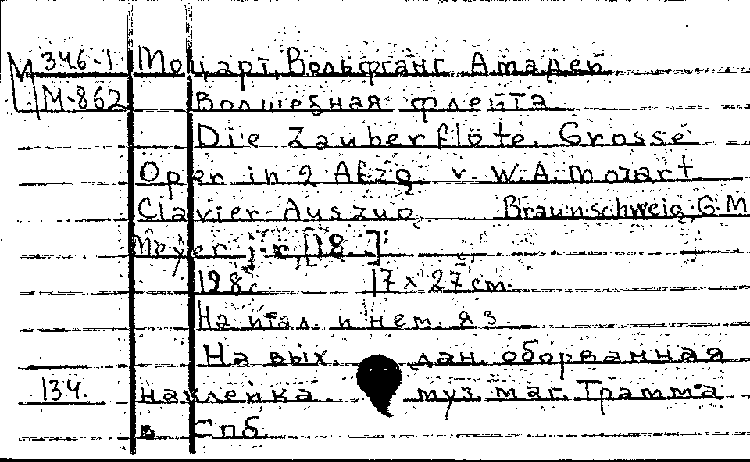 М 346-1 Моцарт, Вольфганг Амадей
М-862 Волшебная флейта
Die Zauberflöte. Grosse
Oper in 2 Akzg. v. W.A. Mozart
Clavier Auszug Braunschweig, G.M.
Meyer jr, [18 ]
198 с. 17 x 27 cm.
На итал. и нем. яз
На вых. дан. оборванная
134. наклейка. муз. маг. Грамма
в Спб.